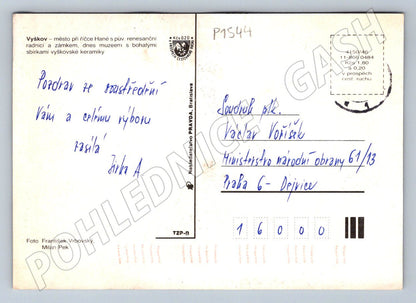 Vyškov – město při říčce Hané s púv. renesanční
radnicí a zámkem, dnes muzeem s bohatými
sbírkami vyškovské keramiky
Pozdrav ze soustředění
Vám a celému výboru
zasílá
Jirka A
Foto František Vrbovský,
Milan Pek
Nakladatelství PRAVDA, Bratislava
TZP-B
P1544
Kčs 1,80
0,20
v prospěch
cest. ruchu
Soudruh plk.
Václav Voříšek
Ministerstvo národní obrany 61/13
Praha 6 - Dejvice
16000
POHLEDNICE GASH